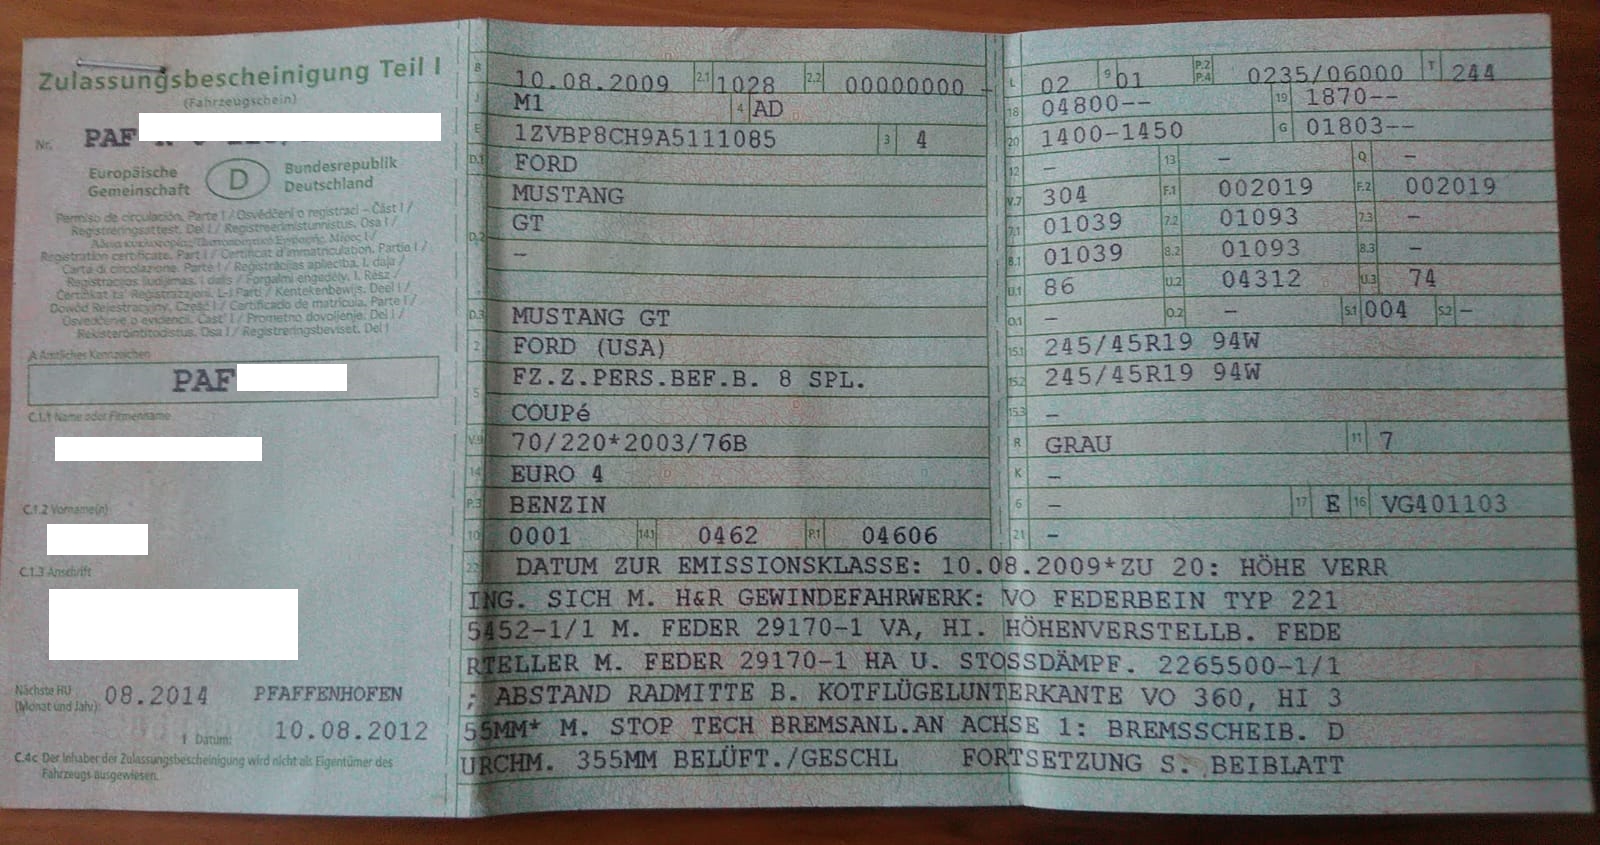 Zulassungsbescheinigung Teil I
(Fahrzeugschein)
Nr. PAF
Europäische Gemeinschaft
D
Bundesrepublik Deutschland
Permiso de circulación. Parte I / Osvědčení o registraci – Část I /
Registreringsattest. Del I / Registreerimistunnistus. Osa I /
Άδεια κυκλοφορίας. Μέρος I /
Registration certificate. Part I / Certificat d'immatriculation. Partie I /
Carta di circolazione. Parte I / Reģistrācijas apliecība. I. daļa /
Registracijos liudijimas. I dalis / Forgalmi engedély. I. Rész /
Ċertifikat ta' Reġistrazzjoni. L-I Parti / Kentekenbewijs. Deel I /
Dowód Rejestracyjny. Część I / Certificado de matrícula. Parte I /
Osvedčenie o evidencii. Časť I / Prometno dovoljenje. Del I /
Rekisteröintitodistus. Osa I / Registreringsbeviset. Del I
A Amtliches Kennzeichen
PAF
C.1.1 Name oder Firmenname
C.1.2 Vorname(n)
C.1.3 Anschrift
Nächste HU
(Monat und Jahr): 08.2014 PFAFFENHOFEN
I Datum: 10.08.2012
C.4c Der Inhaber der Zulassungsbescheinigung wird nicht als Eigentümer des
Fahrzeugs ausgewiesen.
B 10.08.2009 2.1 1028 2.2 00000000 –
J M1 4 AD
E 1ZVBP8CH9A5111085 3 4
D.1 FORD
MUSTANG
D.2 GT
–
-
D.3 MUSTANG GT
2 FORD (USA)
5 FZ.Z.PERS.BEF.B. 8 SPL.
COUPé
V.9 70/220*2003/76B
14 EURO 4
P.3 BENZIN
10 0001 14.1 0462 P.1 04606
L 02 9 01 P.2 P.4 0235/06000 T 244
18 04800-- 19 1870--
20 1400-1450 G 01803--
12 – 13 – Q –
V.7 304 F.1 002019 F.2 002019
7.1 01039 7.2 01093 7.3 –
8.1 01039 8.2 01093 8.3 –
U.1 86 U.2 04312 U.3 74
O.1 – O.2 – S.1 004 S.2 –
15.1 245/45R19 94W
15.2 245/45R19 94W
15.3 –
R GRAU 11 7
K –
6 – 17 E 16 VG401103
21 –
22 DATUM ZUR EMISSIONSKLASSE: 10.08.2009*ZU 20: HÖHE VERR
ING. SICH M. H&R GEWINDEFAHRWERK: VO FEDERBEIN TYP 221
5452-1/1 M. FEDER 29170-1 VA, HI. HÖHENVERSTELLB. FEDE
RTELLER M. FEDER 29170-1 HA U. STOSSDÄMPF. 2265500-1/1
; ABSTAND RADMITTE B. KOTFLÜGELUNTERKANTE VO 360, HI 3
55MM* M. STOP TECH BREMSANL.AN ACHSE 1: BREMSSCHEIB. D
URCHM. 355MM BELÜFT./GESCHL FORTSETZUNG S. BEIBLATT